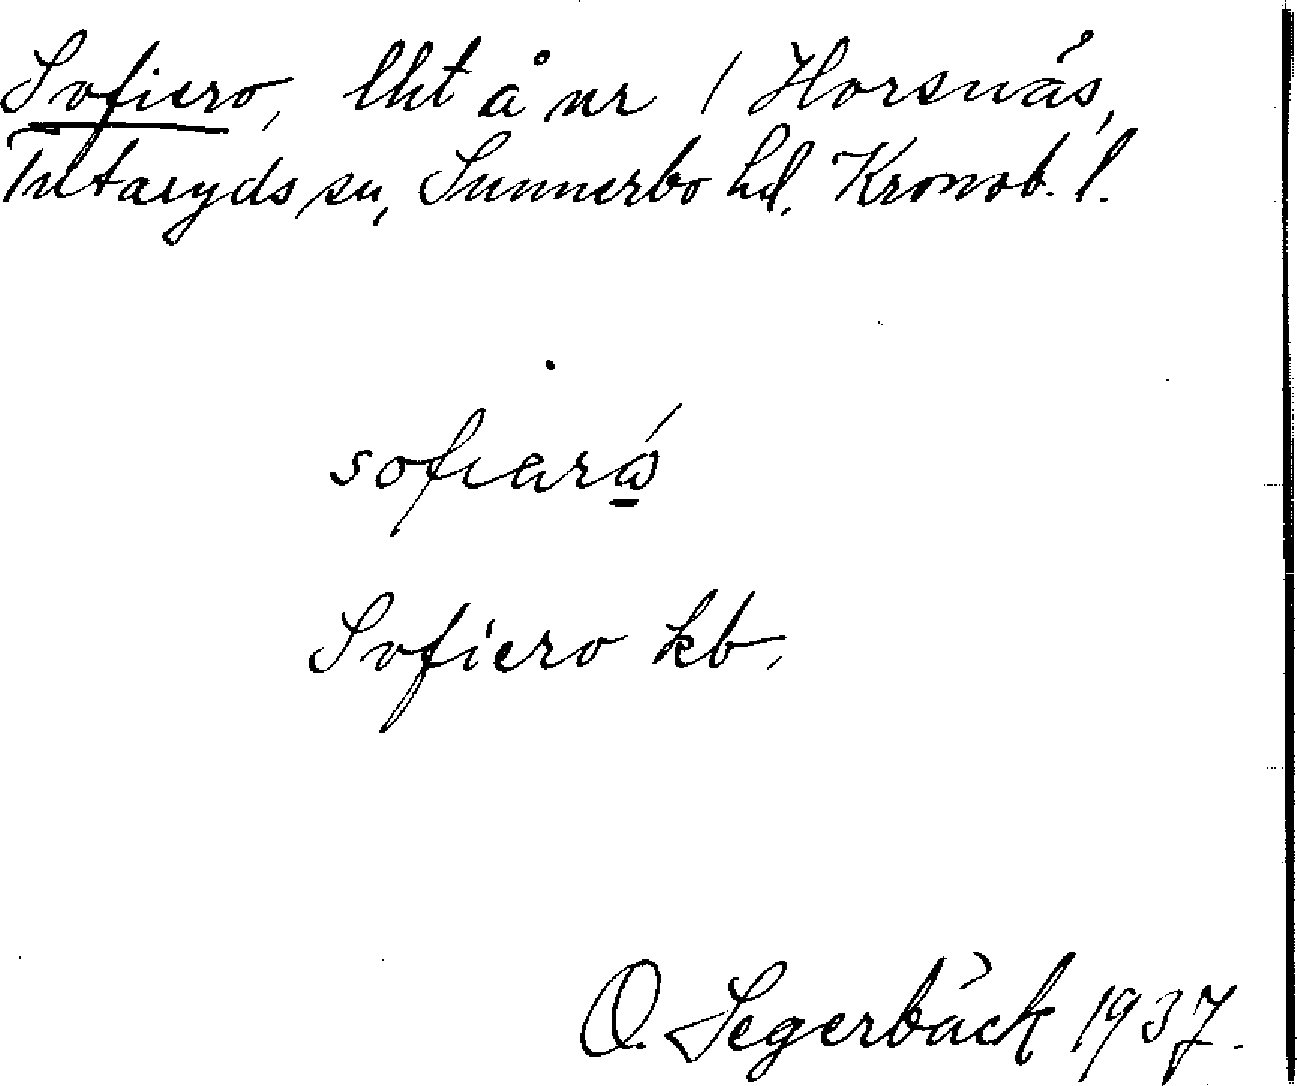 Sofiero, lht å nr 1 Horsnäs,
Tutaryds sn, Sunnerbo hd, Kronob. l.
sofiaró
Sofiero kb.
O. Segerbäck 1937.